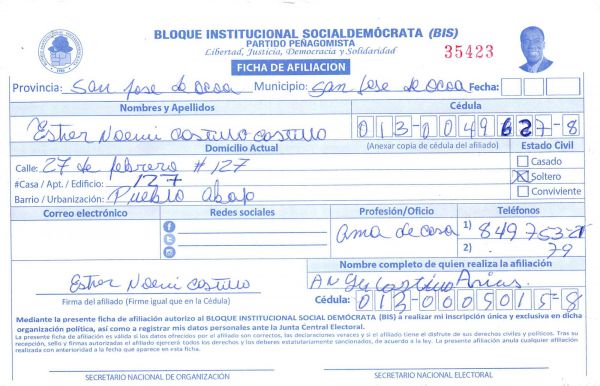 BLOQUE INSTITUCIONAL SOCIALDEMÓCRATA (BIS)
PARTIDO PEÑAGOMISTA
Libertad, Justicia, Democracia y Solidaridad
35423
FICHA DE AFILIACION
Provincia: San Jose de Ocoa Municipio: San Jose de Ocoa Fecha:
Nombres y Apellidos Cédula
Esther Noemi Castillo Castillo 013-0049627-8
Domicilio Actual (Anexar copia de cédula del afiliado) Estado Civil
Calle: 27 de febrero # 127 Casado
#Casa / Apt. / Edificio: 127 Soltero
Barrio / Urbanización: Pueblo Abajo Conviviente
Correo electrónico Redes sociales Profesión/Oficio Teléfonos
Ama de casa 1) 849 753-
2) 79
Nombre completo de quien realiza la afiliación
Esther Noemi Castillo Arias
Firma del afiliado (Firme igual que en la Cédula) Cédula: 013-0005015-8
Mediante la presente ficha de afiliación autorizo al BLOQUE INSTITUCIONAL SOCIAL DEMÓCRATA (BIS) a realizar mi inscripción única y exclusiva en dicha
organización política, así como a registrar mis datos personales ante la Junta Central Electoral.
La presente ficha de afiliación es válida si los datos ofrecidos por el afiliado son correctos, las declaraciones veraces y si el afiliado tiene el disfrute de sus derechos civiles y políticos. Tras su
recepción, sello y firmas autorizadas el afiliado ejercerá todos los derechos y los deberes estatutariamente sancionados, de acuerdo a la ley. La presente afiliación anula cualquier afiliación
realizada con anterioridad a la fecha que aparece en esta ficha.
SECRETARIO NACIONAL DE ORGANIZACIÓN SECRETARIO NACIONAL ELECTORAL